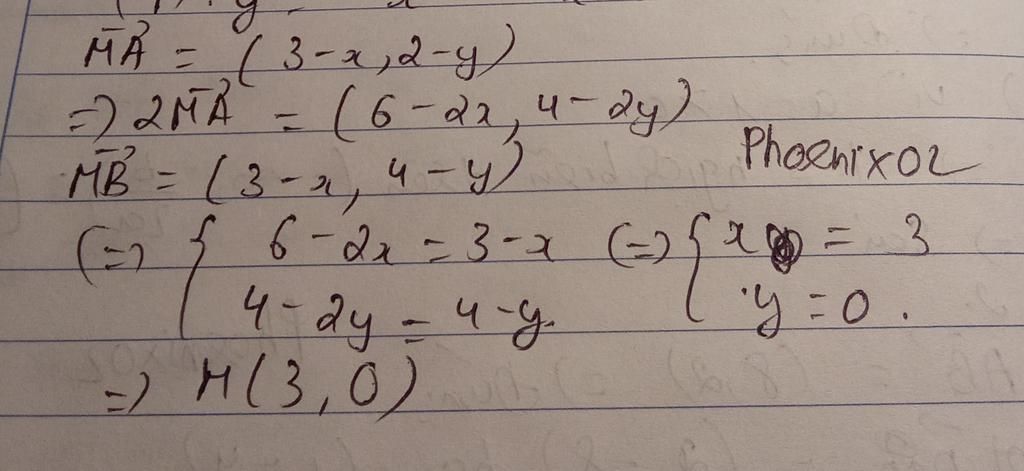 MA⃗ = (3-x, 2-y)
=> 2MA⃗ = (6-2x, 4-2y)
MB⃗ = (3-x, 4-y)
Phoenix02
(=> { 6-2x = 3-x (=> { x = 3
4-2y = 4-y. y = 0.
=> M(3, 0)